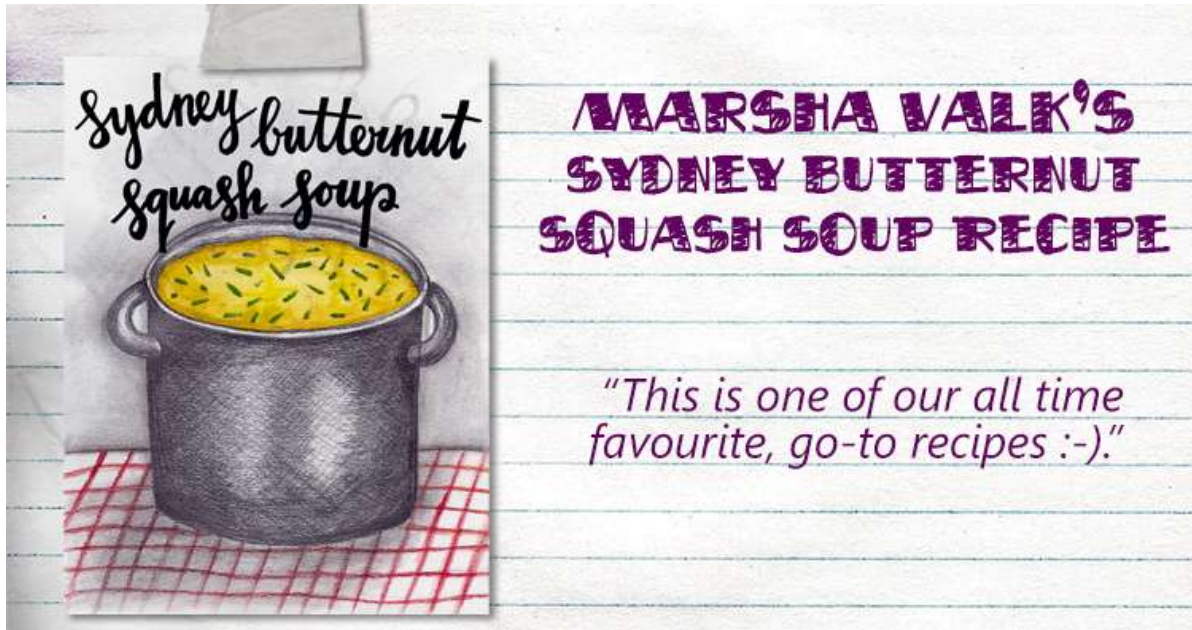 sydney butternut
squash soup
MARSHA VALK'S
SYDNEY BUTTERNUT
SQUASH SOUP RECIPE
“This is one of our all time
favourite, go-to recipes :-).”